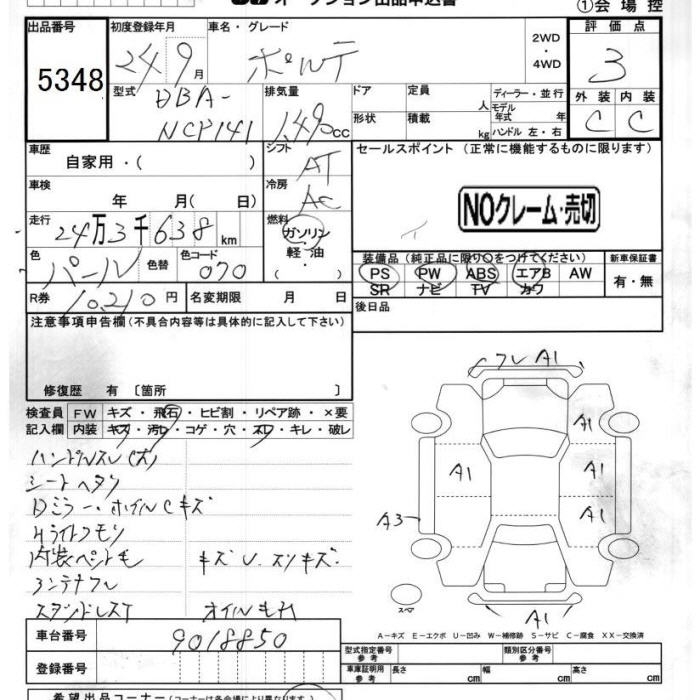 オークション出品申込書
①会場控
出品番号 初度登録年月 車名・グレード 2WD・4WD 評価点
5348 24年9月 ポルテ 3
型式 DBA-NCP141 排気量 1.49CC ドア 定員 人 ディーラー・並行 外装 内装
形状 積載 kg モデル年式 年 ハンドル 左・右 C C
車歴 自家用・( ) シフト AT セールスポイント (正常に機能するものに限ります)
車検 年 月( 日) 冷房 AC
NOクレーム・売切
走行 24万3千638km 燃料 ガソリン・軽油・( )
色 パール 色替 色コード 070
装備品(純正品に限り○をつけてください) 新車保証書
PS PW ABS エアB AW 有・無
SR ナビ TV カワ
R券 10,210円 名変期限 月 日 後日品
注意事項申告欄(不具合内容等は具体的に記入して下さい)
修復歴 有 〔箇所 〕
検査員 FW キズ・飛石・ヒビ割・リペア跡・×要
記入欄 内装 キズ・汚レ・コゲ・穴・スレ・キレ・破レ
ハンドルスレ(大)
シートヘタリ
Dミラー・ホイルCキズ
Hライトクモリ
内装ペット毛 キズU、スリキズ
アンテナフレ
オイルもれ
フレA1
A1
A1
A1
A1
A3
A1
スペア
A-キズ E-エクボ U-凹み W-補修跡 S-サビ C-腐食 XX-交換済
車台番号 9018850
型式指定番号 参考 類別区分番号 参考
登録番号
車庫証明用 参考 長さ cm 幅 cm 高さ cm
希望出品コーナー(コーナーは各会場により異なります)